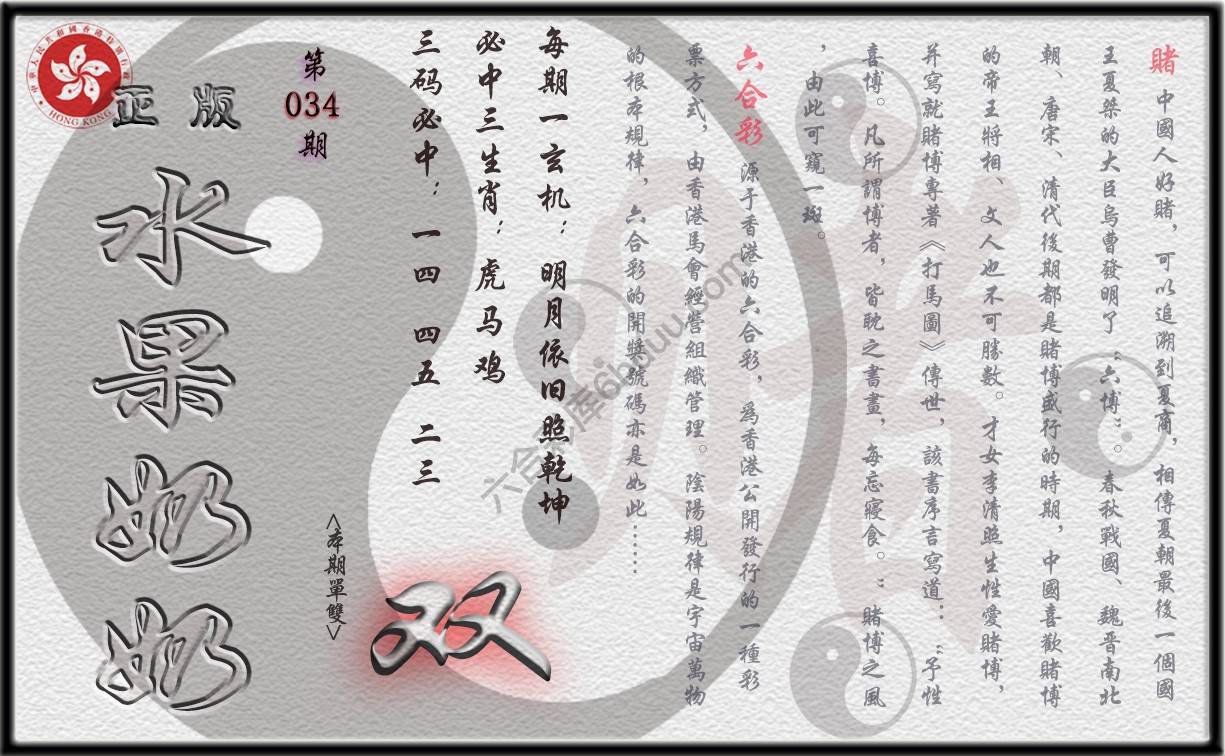 賭 中國人好賭，可以追溯到夏商，相傳夏朝最後一個國
王夏桀的大臣烏曹發明了“六博”。春秋戰國、魏晉南北
朝、唐宋、清代後期都是賭博盛行的時期，中國喜歡賭博
的帝王將相、文人也不可勝數。才女李清照生性愛賭博，
并寫就賭博專著《打馬圖》傳世，該書序言寫道：“予性
喜博。凡所謂博者，皆耽之書畫，每忘寢食。”賭博之風
，由此可窺一斑。
六合彩 源于香港的六合彩，爲香港公開發行的一種彩
票方式，由香港馬會經營組織管理。陰陽規律是宇宙萬物
的根本規律，六合彩的開獎號碼亦是如此……
每期一玄机：明月依旧照乾坤
必中三生肖：虎马鸡
三码必中：一四 四五 二三
双
<本期單雙>
第
034
期
正版
水果奶奶
HONG KONG